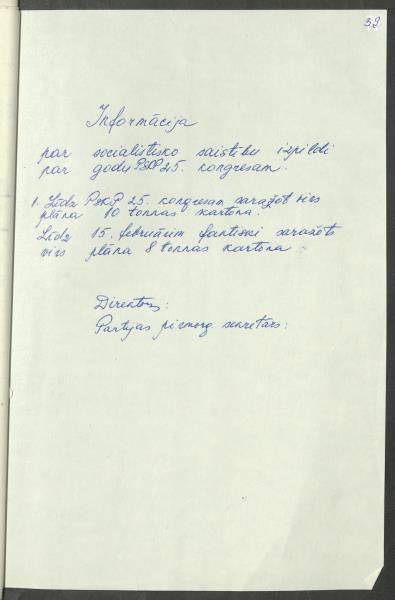 39
Informācija
par socialistisko saistību izpildi
par godu PSKP 25. kongresam.
1. Līdz PSKP 25. kongresam saražot virs
plāna 10 tonnas kartona.
Līdz 15. februārim faktiski saražots
virs plāna 8 tonnas kartona
Direktors:
Partijas pirmorg. sekretārs: